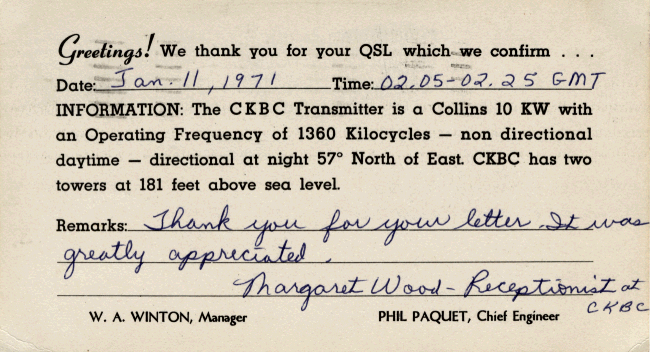 Greetings! We thank you for your QSL which we confirm . . .
Date: Jan. 11, 1971 Time: 02.05-02.25 GMT
INFORMATION: The CKBC Transmitter is a Collins 10 KW with
an Operating Frequency of 1360 Kilocycles — non directional
daytime — directional at night 57° North of East. CKBC has two
towers at 181 feet above sea level.
Remarks: Thank you for your letter. It was
greatly appreciated.
Margaret Wood - Receptionist at
CKBC
W. A. WINTON, Manager PHIL PAQUET, Chief Engineer